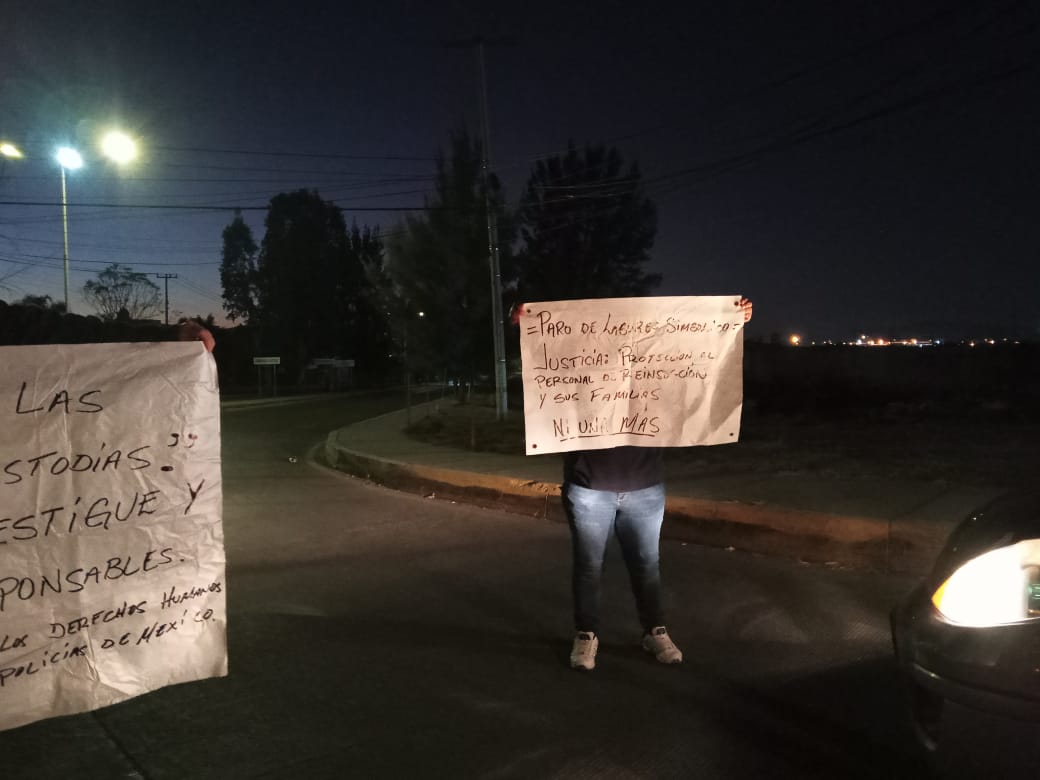 LAS
STODIAS."
ESTIGUE Y
PONSABLES.
LOS DERECHOS HUMANOS
POLICIAS DE MEXICO.
=PARO DE LABORES SIMBOLICO=
JUSTICIA: PROTECCION AL
PERSONAL DE REINSERCIÓN
Y SUS FAMILIAS
NI UNA MÁS